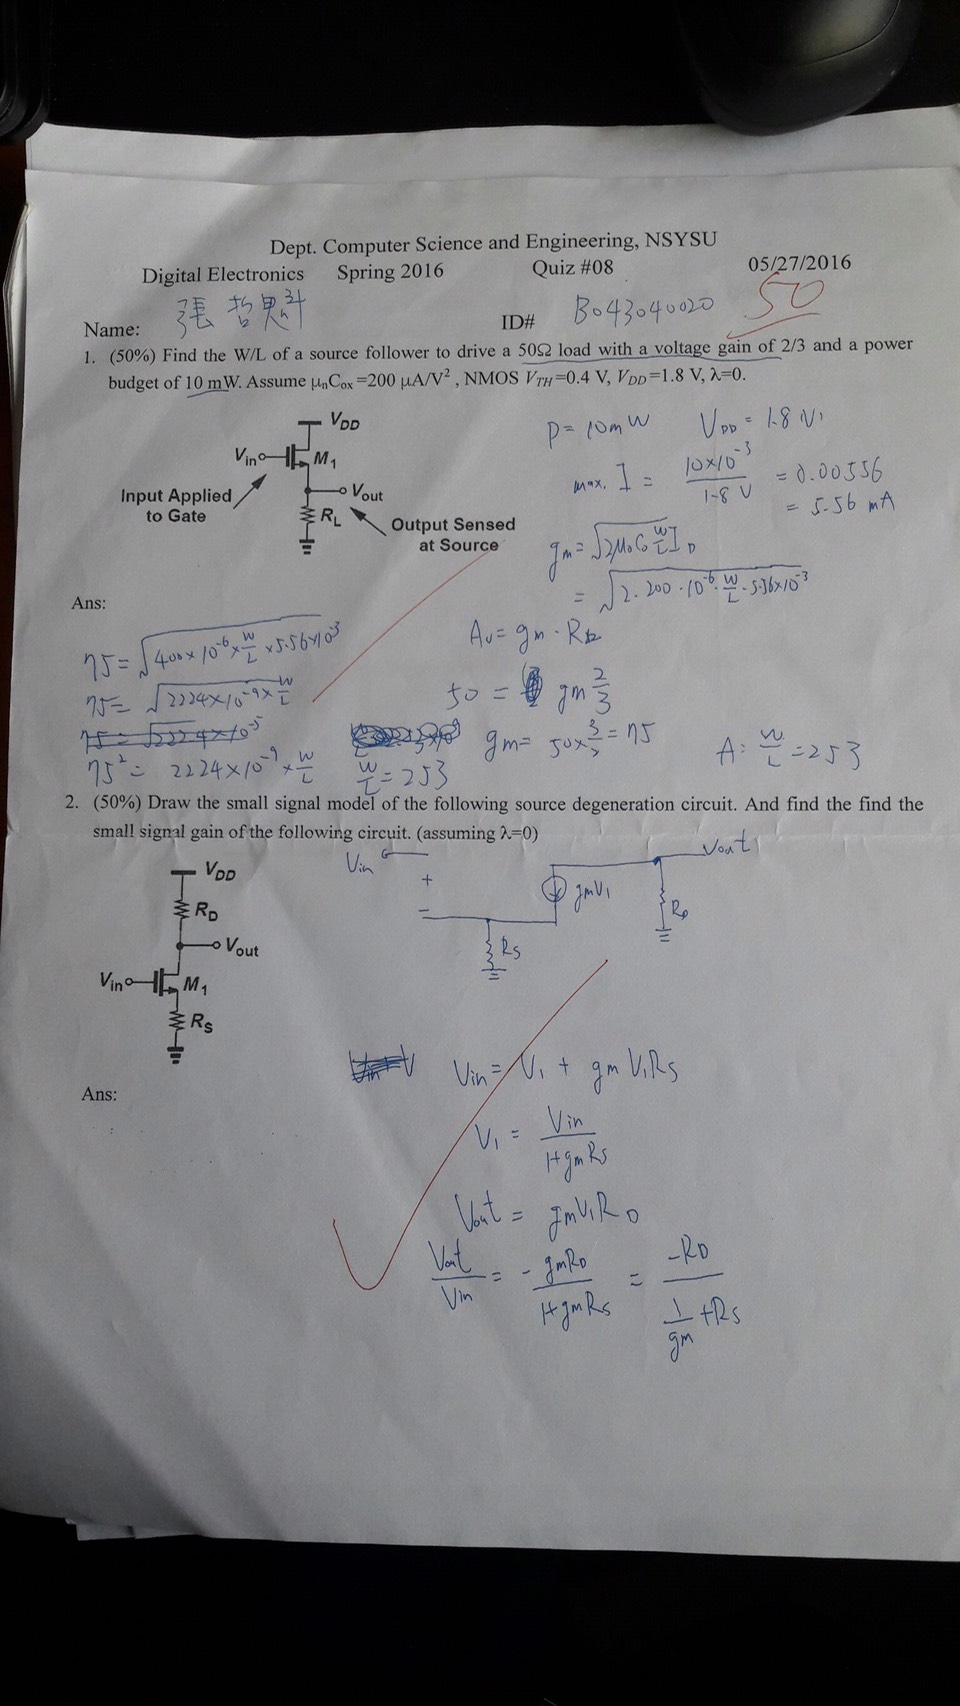 Dept. Computer Science and Engineering, NSYSU
Digital Electronics Spring 2016 Quiz #08 05/27/2016
50
Name: 張哲魁 ID# B043040020
1. (50%) Find the W/L of a source follower to drive a 50Ω load with a voltage gain of 2/3 and a power
budget of 10 mW. Assume μnCox =200 μA/V² , NMOS VTH=0.4 V, VDD=1.8 V, λ=0.
VDD
Vin
M1
Vout
RL
Input Applied
to Gate
Output Sensed
at Source
P = 10mW VDD = 1.8 V
max. I = 10×10^-3 / 1.8 V = 0.00556
= 5.56 mA
gm = √(2μnCo W/L ID)
= √(2·200·10^-6·W/L·5.56×10^-3)
Ans:
75 = √(400×10^-6×W/L×5.56×10^-3)
75 = √(2224×10^-9×W/L)
75² = 2224×10^-9×W/L
W/L = 253
Av = gm·R
50 = gm 2/3
gm = 50×3/2 = 75
A: W/L = 253
2. (50%) Draw the small signal model of the following source degeneration circuit. And find the find the
small signal gain of the following circuit. (assuming λ=0)
VDD
RD
Vout
Vin
M1
RS
Vin
+
−
gmV1
Vout
RD
RS
Ans:
Vin = V1 + gmV1RS
V1 = Vin / 1+gmRS
Vout = gmV1RD
Vout / Vin = - gmRD / 1+gmRS = -RD / 1/gm +RS